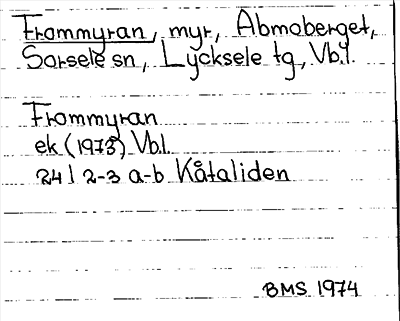 Frommyran, myr, Abmoberget,
Sorsele sn, Lycksele tg, Vb.l.
Frommyran
ek (1973) Vb.l.
24 I 2-3 a-b Kåtaliden
BMS 1974